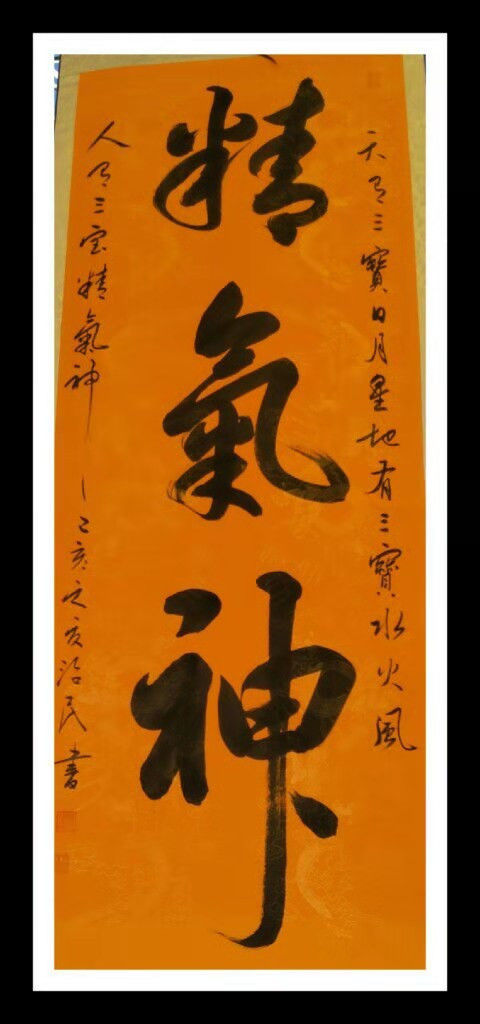 天有三寶日月星地有三寶水火風
精氣神
人有三宝精氣神
亥之夏治民書